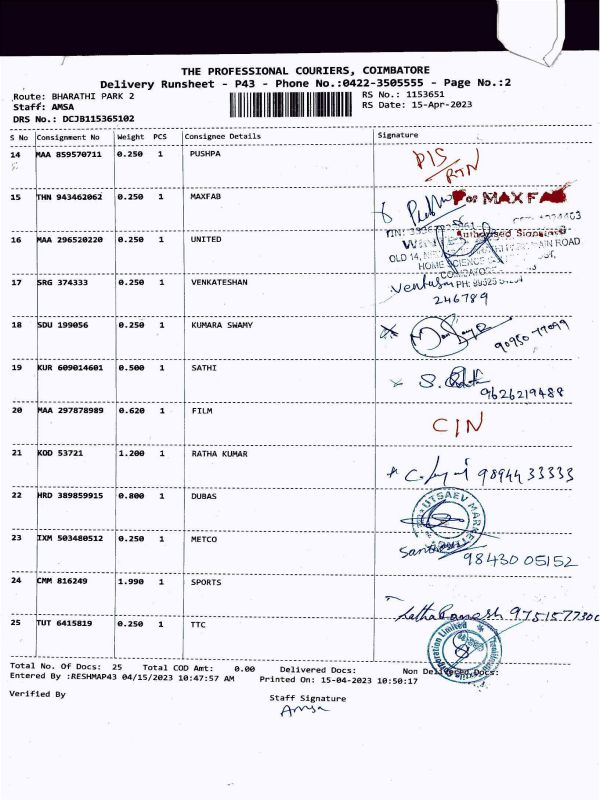 THE PROFESSIONAL COURIERS, COIMBATORE
Delivery Runsheet - P43 - Phone No.:0422-3505555 - Page No.:2
Route: BHARATHI PARK 2
RS No.: 1153651
Staff: AMSA
RS Date: 15-Apr-2023
DRS No.: DCJB115365102
S No Consignment No Weight PCS Consignee Details Signature
14 MAA 859570711 0.250 1 PUSHPA
DIS/RTN
15 THN 943462062 0.250 1 MAXFAB
For MAX FAB
Authorised Signatory
16 MAA 296520220 0.250 1 UNITED
OLD 14, MAIN ROAD
HOME SCIENCE
17 SRG 374333 0.250 1 VENKATESHAN
PH: 99325
246789
18 SDU 199056 0.250 1 KUMARA SWAMY
90950 77099
19 KUR 609014601 0.500 1 SATHI
9626219488
20 MAA 297878989 0.620 1 FILM
CIN
21 KOD 53721 1.200 1 RATHA KUMAR
98944 33333
22 HRD 389859915 0.800 1 DUBAS
UTSAEV MARKET
23 IXM 503480512 0.250 1 METCO
98430 05152
24 CMM 816249 1.990 1 SPORTS
25 TUT 6415819 0.250 1 TTC
Corporation Limited
Total No. Of Docs: 25 Total COD Amt: 0.00 Delivered Docs: Non Delivered Docs:
Entered By :RESHMAP43 04/15/2023 10:47:57 AM Printed On: 15-04-2023 10:50:17
Verified By
Staff Signature
Amsa